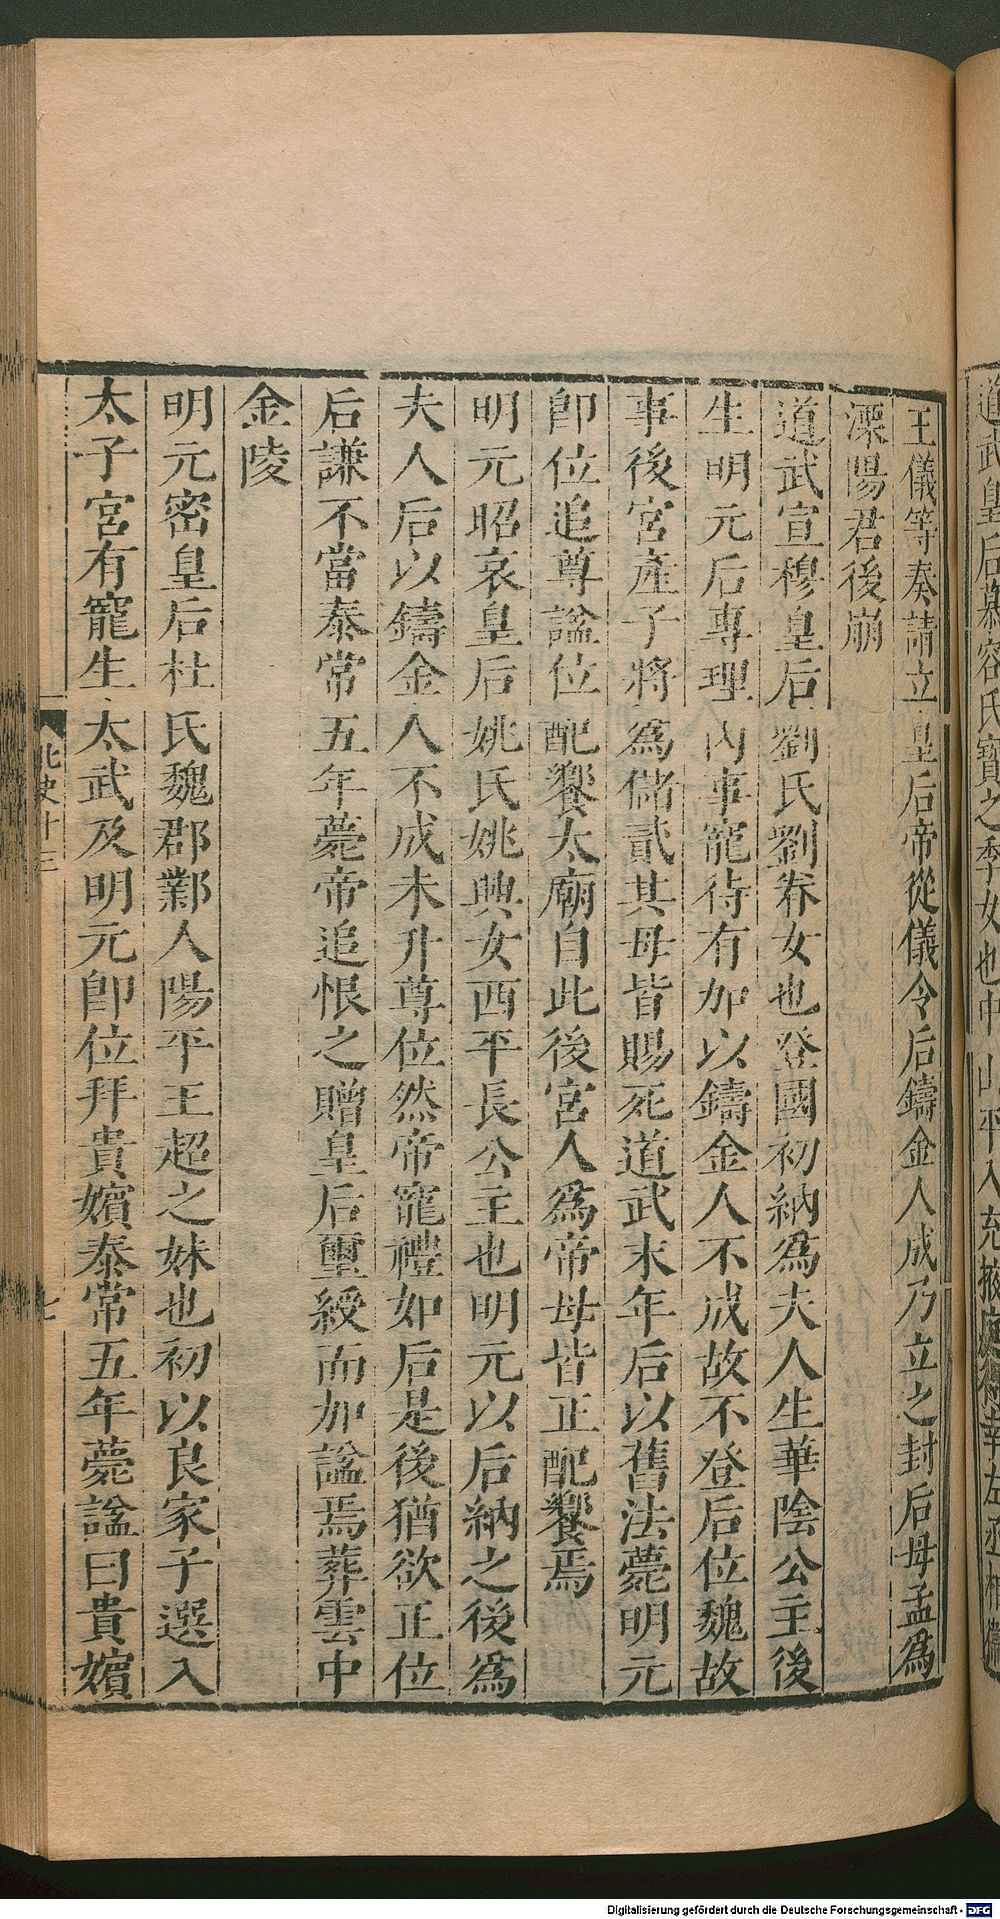 道武皇后慕容氏寶之季女也中山平入充掖庭得幸左丞相衛
王儀等奏請立皇后帝從儀令后鑄金人成乃立之封后母孟為
溧陽君後崩
道武宣穆皇后劉氏劉眷女也登國初納為夫人生華陰公主後
生明元后專理內事寵待有加以鑄金人不成故不登后位魏故
事後宮產子將為儲貳其母皆賜死道武末年后以舊法薨明元
卽位追尊諡位配饗太廟自此後宮人為帝母皆正配饗焉
明元昭哀皇后姚氏姚興女西平長公主也明元以后納之後為
夫人后以鑄金人不成未升尊位然帝寵禮如后是後猶欲正位
后謙不當泰常五年薨帝追恨之贈皇后璽綬而加諡焉葬雲中
金陵
明元密皇后杜氏魏郡鄴人陽平王超之妹也初以良家子選入
太子宮有寵生太武及明元卽位拜貴嬪泰常五年薨諡曰貴嬪
北史十三
七
Digitalisierung gefördert durch die Deutsche Forschungsgemeinschaft - DFG